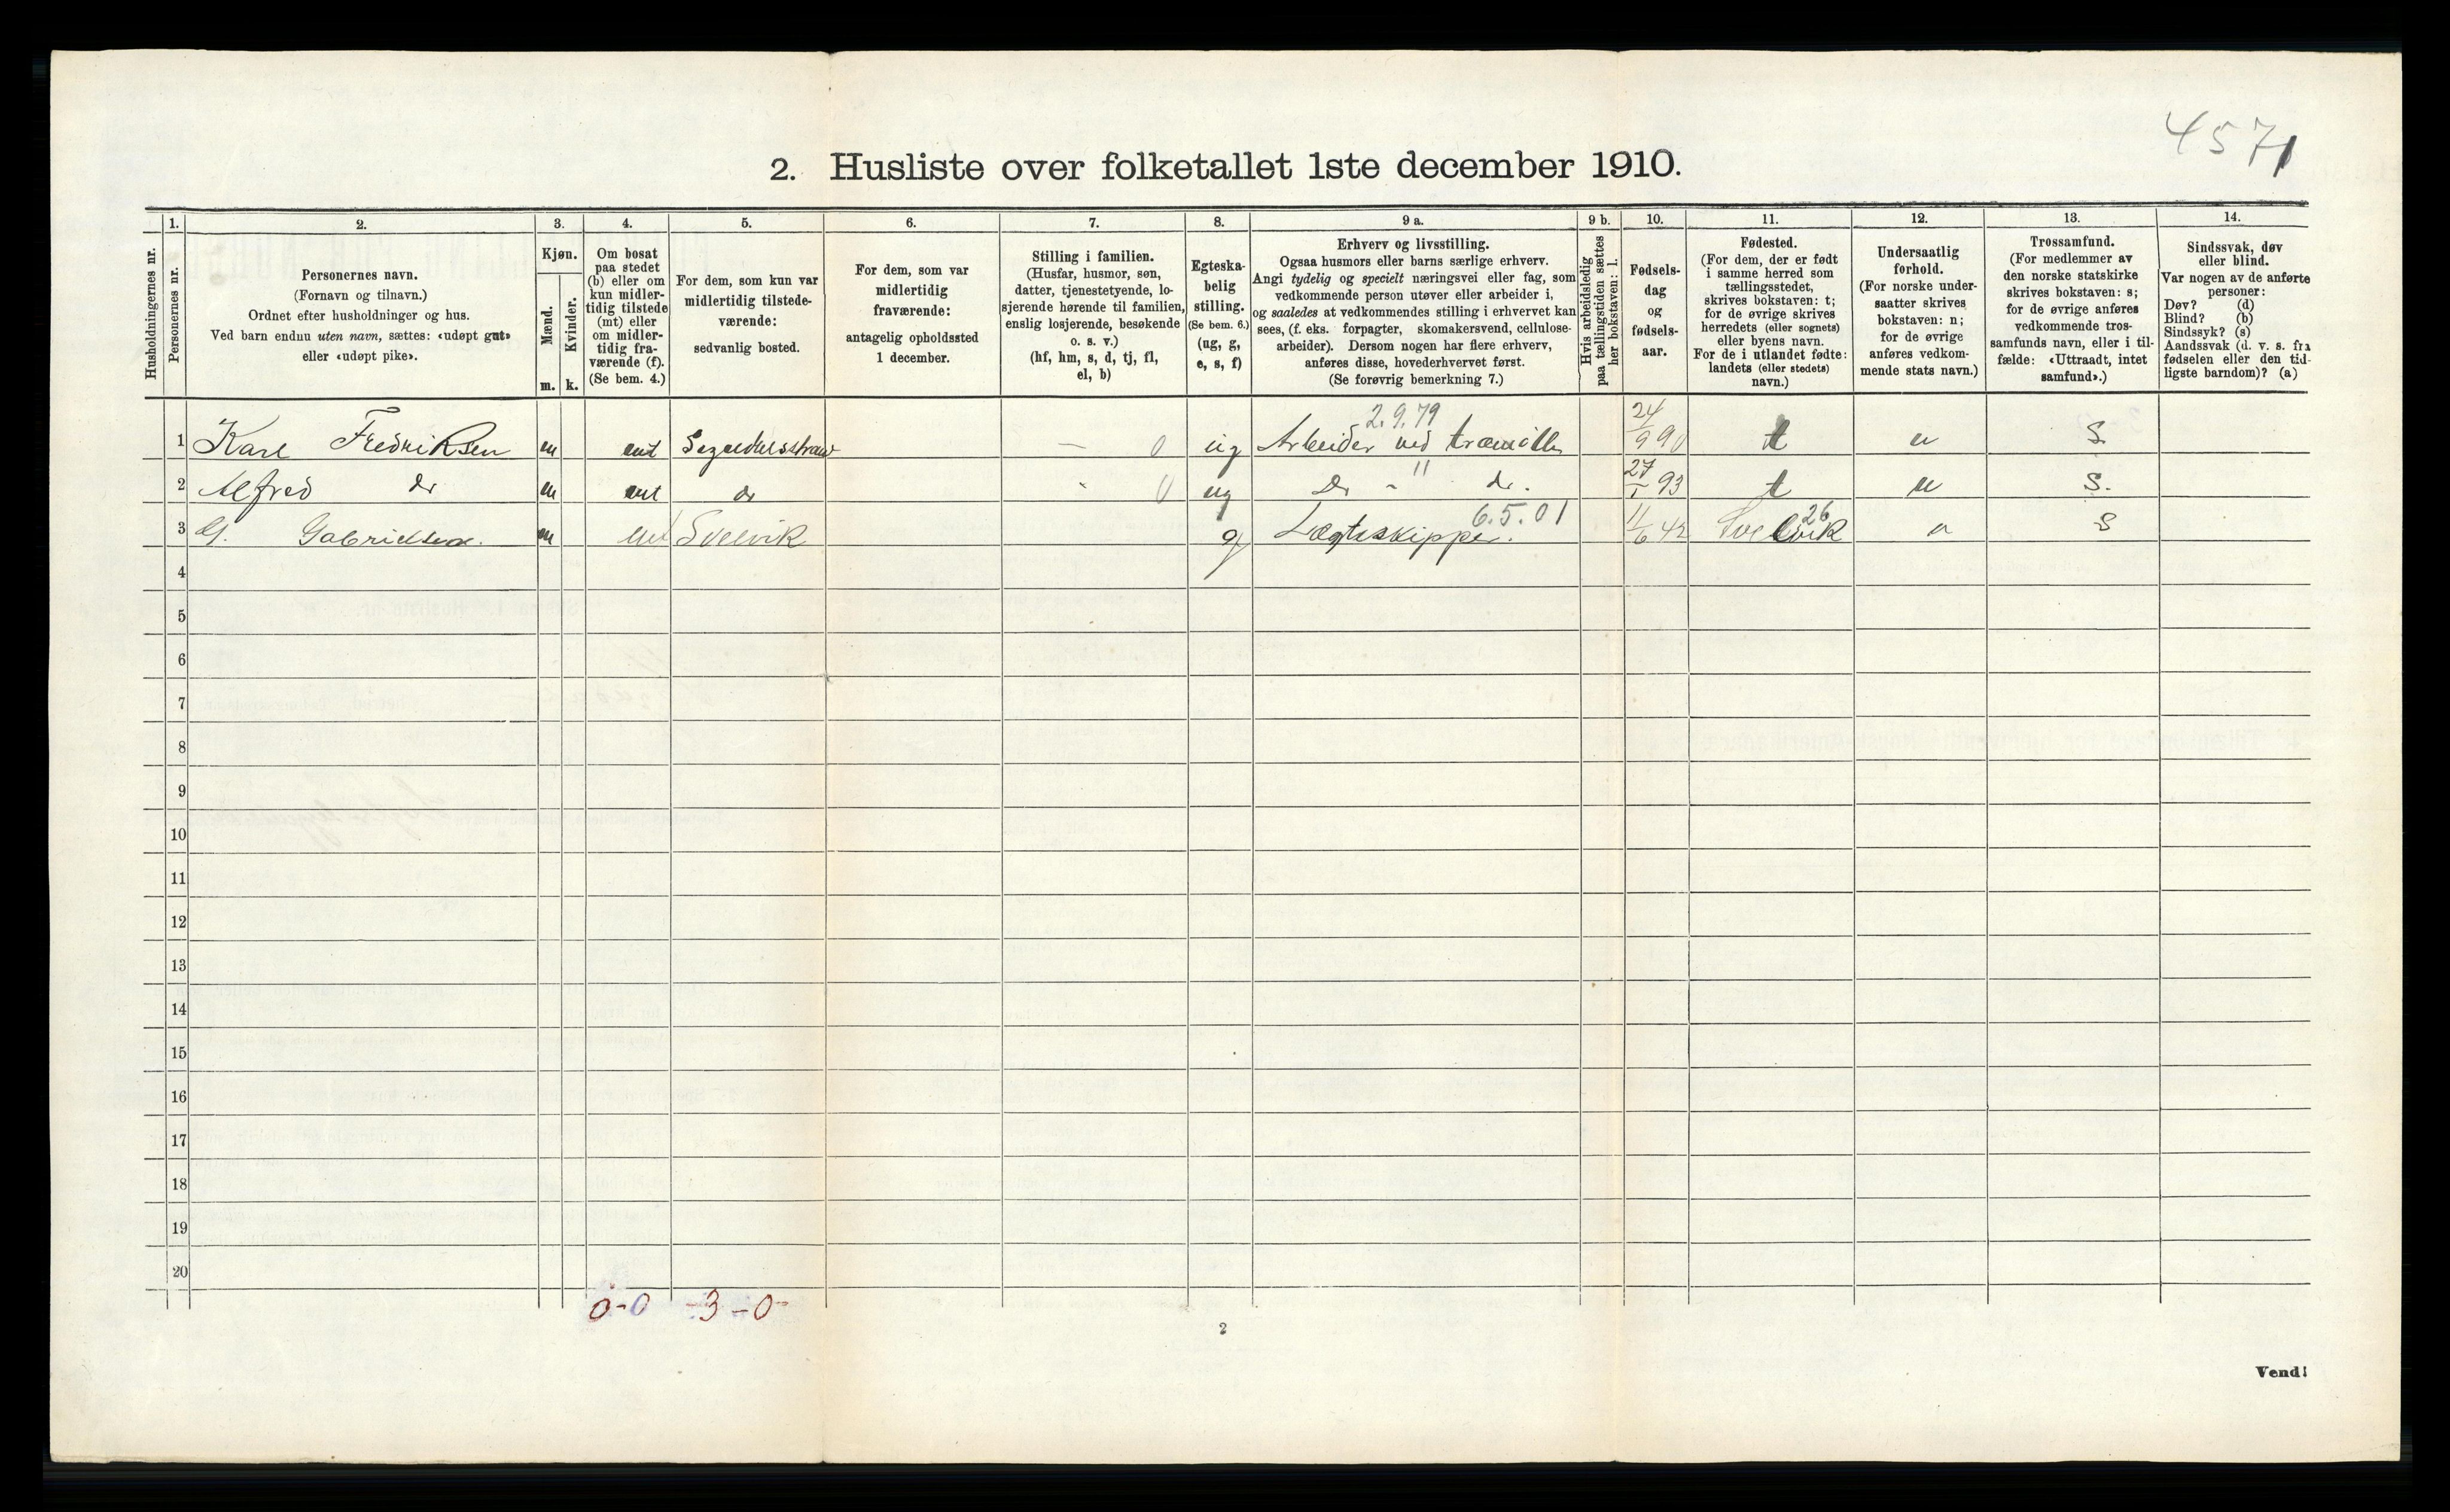 4571
2. Husliste over folketallet 1ste december 1910.
Husholdningernes nr.
1. Personernes nr.
2. Personernes navn. (Fornavn og tilnavn.) Ordnet efter husholdninger og hus. Ved barn endnu uten navn, sættes: «udøpt gut» eller «udøpt pike».
3. Kjøn. Mænd. m. Kvinder. k.
4. Om bosat paa stedet (b) eller om kun midler-tidig tilstede (mt) eller om midler-tidig fra-værende (f). (Se bem. 4.)
5. For dem, som kun var midlertidig tilstede-værende: sedvanlig bosted.
6. For dem, som var midlertidig fraværende: antagelig opholdssted 1 december.
7. Stilling i familien. (Husfar, husmor, søn, datter, tjenestetyende, lo-sjerende hørende til familien, enslig losjerende, besøkende o. s. v.) (hf, hm, s, d, tj, fl, el, b)
8. Egteska-belig stilling. (Se bem. 6.) (ug, g, e, s, f)
9 a. Erhverv og livsstilling. Ogsaa husmors eller barns særlige erhverv. Angi tydelig og specielt næringsvei eller fag, som vedkommende person utøver eller arbeider i, og saaledes at vedkommendes stilling i erhvervet kan sees, (f. eks. forpagter, skomakersvend, cellulose-arbeider). Dersom nogen har flere erhverv, anføres disse, hovederhvervet først. (Se forøvrig bemerkning 7.)
9 b. Hvis arbeidsledig paa tællingstiden sættes her bokstaven: l.
10. Fødsels-dag og fødsels-aar.
11. Fødested. (For dem, der er født i samme herred som tællingsstedet, skrives bokstaven: t; for de øvrige skrives herredets (eller sognets) eller byens navn. For de i utlandet fødte: landets (eller stedets) navn.)
12. Undersaatlig forhold. (For norske under-saatter skrives bokstaven: n; for de øvrige anføres vedkom-mende stats navn.)
13. Trossamfund. (For medlemmer av den norske statskirke skrives bokstaven: s; for de øvrige anføres vedkommende tros-samfunds navn, eller i til-fælde: «Uttraadt, intet samfund».)
14. Sindssvak, døv eller blind. Var nogen av de anførte personer: Døv? (d) Blind? (b) Sindssyk? (s) Aandssvak (d. v. s. fra fødselen eller den tid-ligste barndom)? (a)
2.9.79
1 Karl Fredriksen m mt — 0 ug Arbeider ved træmølle 24/9 90 t n s
2 Alfred do m mt do 0 ug Do - " do. 27/1 93 t n s.
6.5.01 26
3 G. Gabrielsen. m mt Svelvik g Lægteskipper. 11/6 42 Svelvik n s
4
5
6
7
8
9
10
11
12
13
14
15
16
17
18
19
20
0-0 -3-0-
2
Vend!